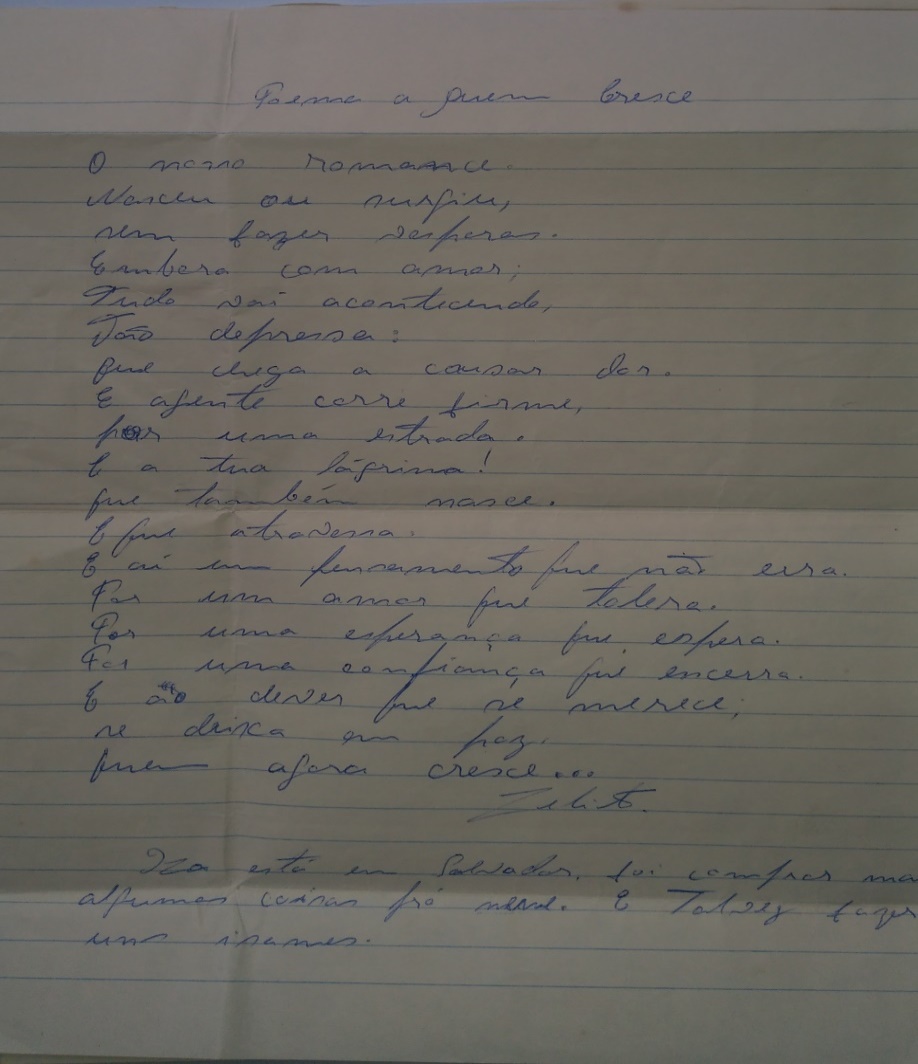 Poema a quem Cresce
O nosso romance.
Nasceu ou surgiu,
sem fazer vesperas.
Embora com amor;
Tudo vai acontecendo,
Tão depressa:
que chega a causar dor.
E agente corre firme,
por uma estrada.
E a tua lágrima!
que também nasce.
E que atravessa.
E ai um pensamento que não erra.
Por um amor que tolera.
Por uma esperança que espera.
Por uma confiança que encerra.
E ao dever que se merece;
se deixa em paz.
quem agora cresce...
Zelito.
Iza está em Salvador, foi comprar
algumas coisas prá E Talvez fazer
uns isames.